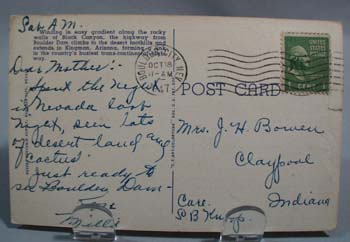 Sat. A.M.
Winding in easy gradient along the rocky
walls of Black Canyon, the highway from
Boulder Dam climbs to the desert foothills and
extends to Kingman, Arizona, forming
in the country's busiest trans-continental
way.
Dear Mother:
Spent the night
in Nevada last
night, seen lots
of desert land and
cactus.
Just ready to
see Boulder Dam.
Millie
BOULDER CITY NEV.
OCT 18
-AM
1947
POST CARD
UNITED STATES
1 CENT
Mrs. J. H. Bowen
Claypool
Indiana
Care.